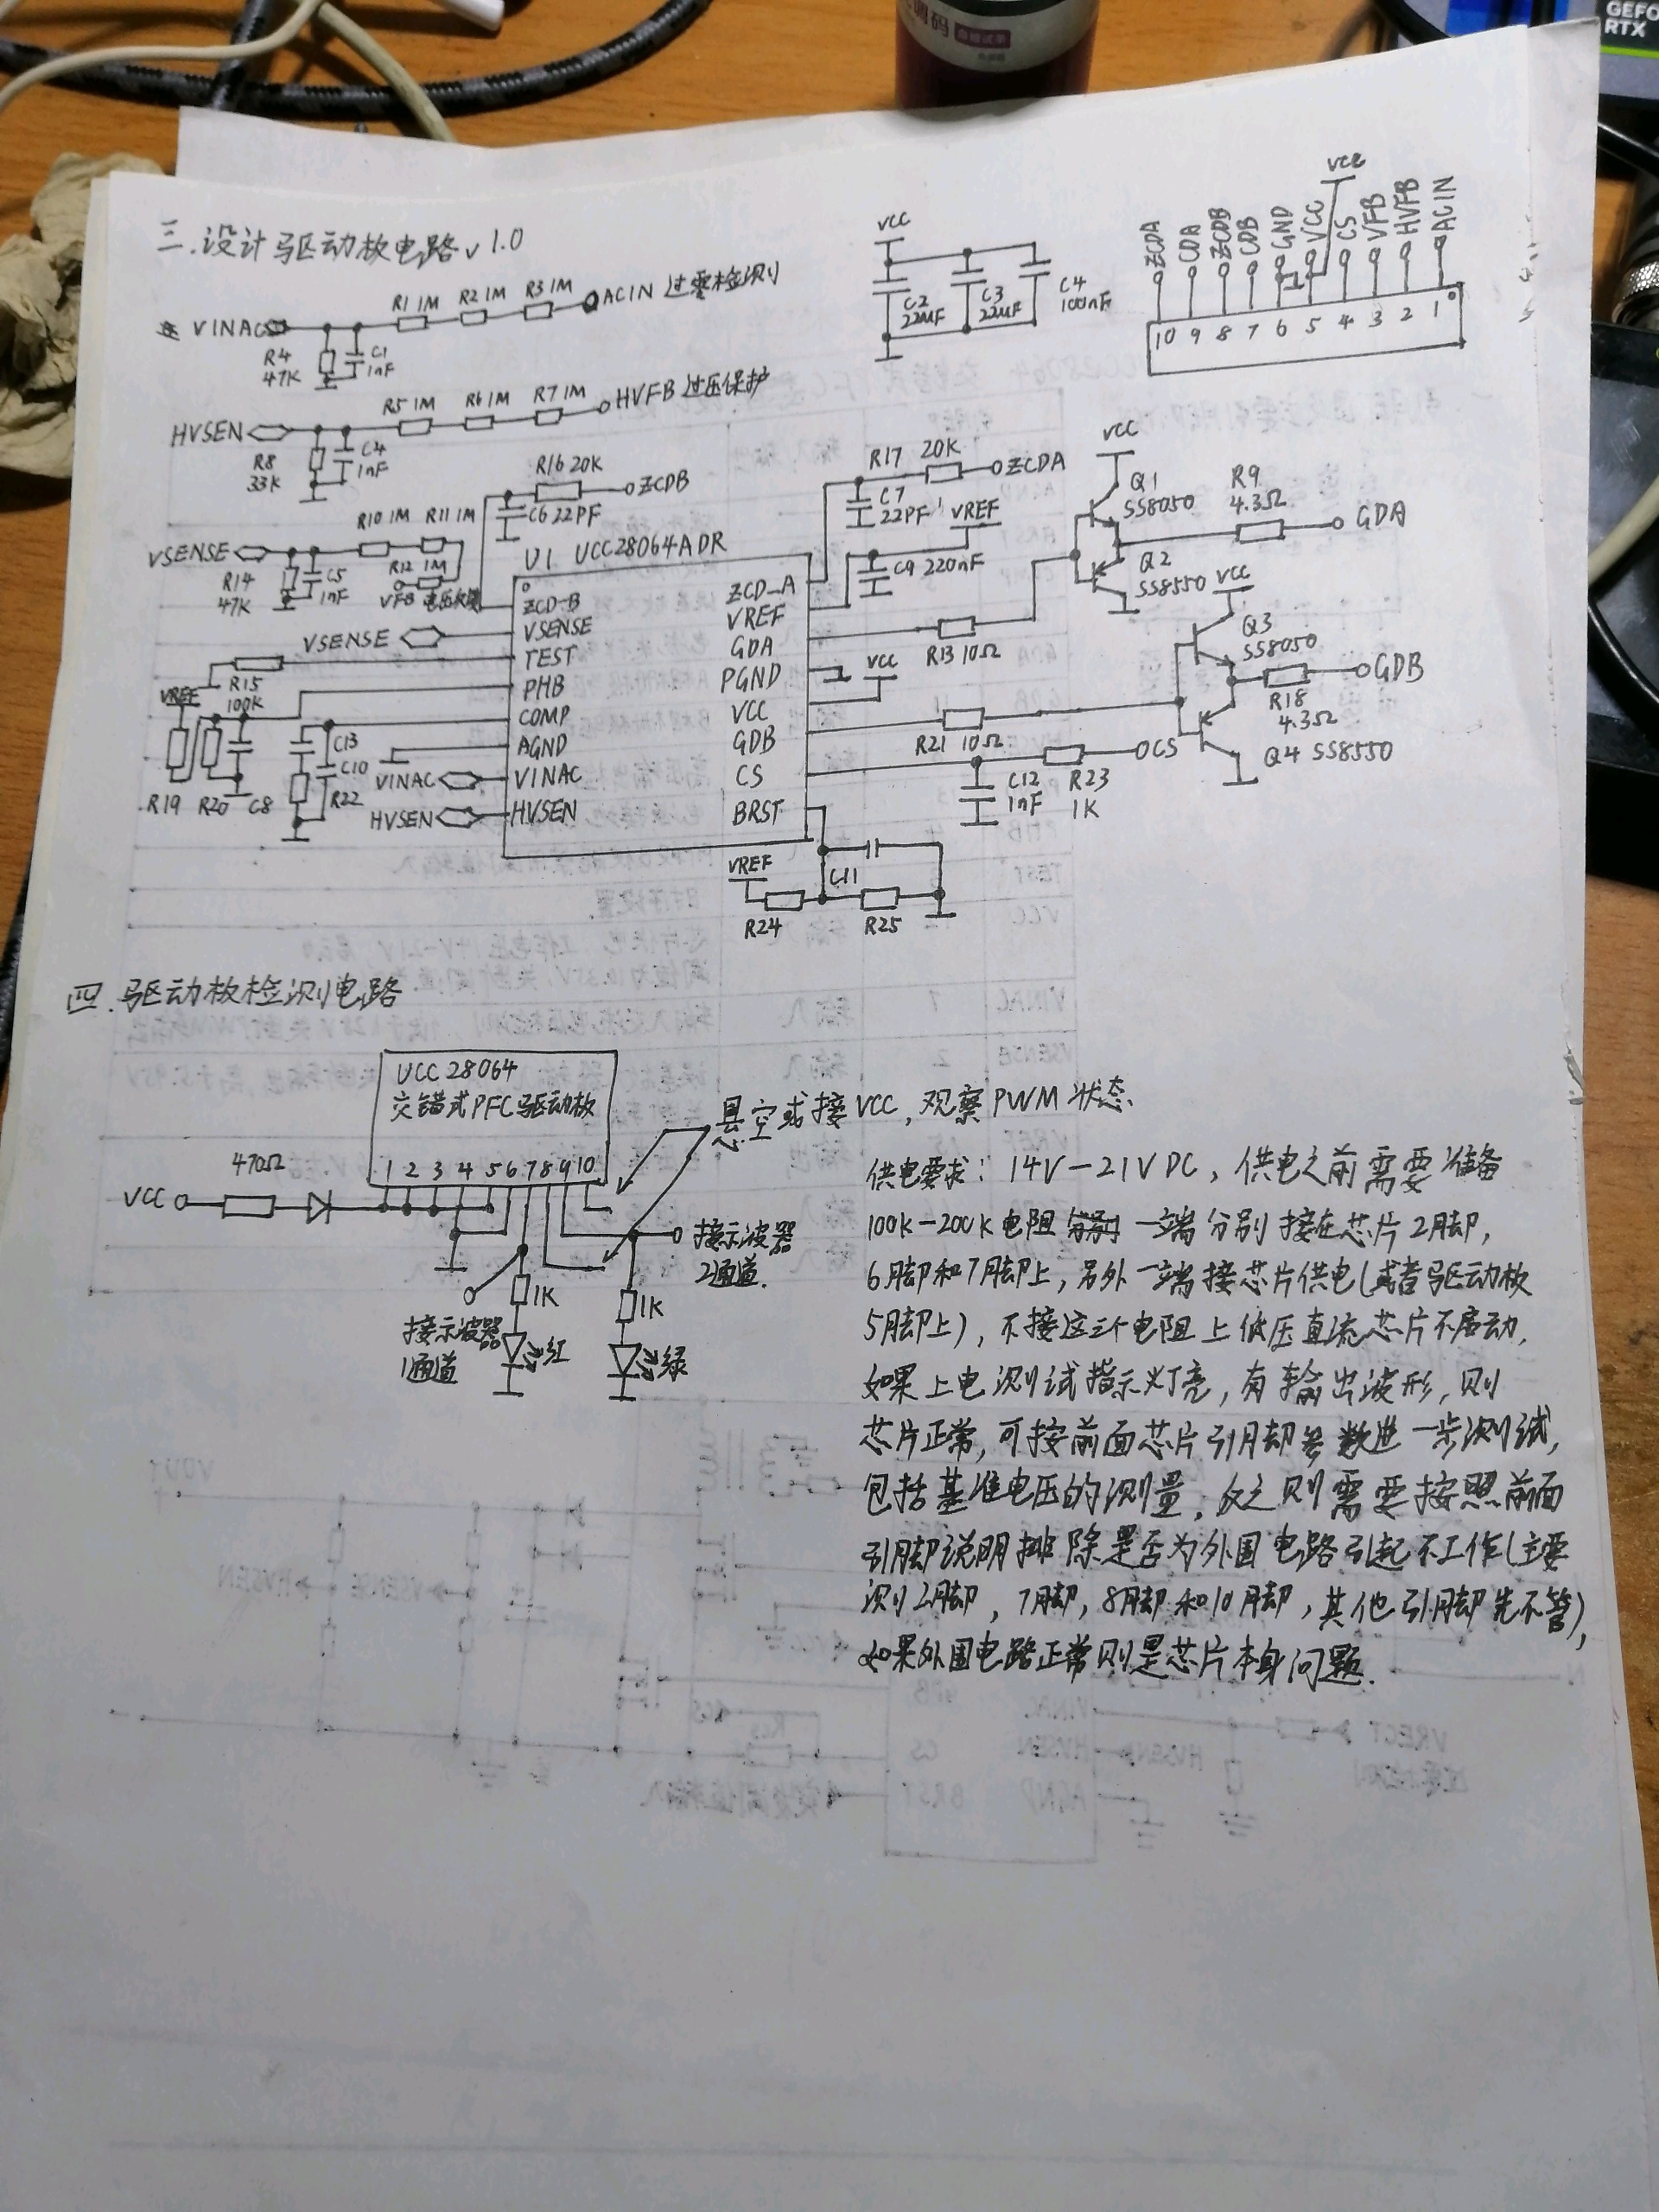 GEFO
RTX
三.设计驱动放电路v1.0
VINAC
R1 1M
R2 1M
R3 1M
ACIN 过零检测
R4
47K
C1
1nF
VCC
C2
22uF
C3
22uF
C4
100nF
VCC
ZCDA
CDA
ZCDB
CDB
GND
VCC
CS
VFB
HVFB
ACIN
10 9 8 7 6 5 4 3 2 1
HVSEN
R5 1M
R6 1M
R7 1M
HVFB 过压保护
R8
33K
C4
1nF
R16 20K
ZCDB
C6 22PF
R17 20K
ZCDA
C7
22PF
VREF
C9 220nF
VSENSE
R10 1M
R11 1M
R12 1M
VFB
R14
47K
C5
1nF
U1 UCC28064ADR
ZCD-B
VSENSE
TEST
PHB
COMP
AGND
VINAC
HVSEN
ZCD-A
VREF
GDA
PGND
VCC
GDB
CS
BRST
VSENSE
VREF
R15
100K
R19 R20 C8
C13
C10
R22
VINAC
HVSEN
R13 10Ω
VCC
R21 10Ω
CS
C12
1nF
R23
1K
VREF
C11
R24
R25
VCC
Q1
SS8050
R9
4.3Ω
GDA
Q2
SS8550
VCC
Q3
SS8050
GDB
R18
4.3Ω
Q4 SS8550
四.驱动板检测电路
UCC28064
交错式PFC驱动板
1 2 3 4 5 6 7 8 9 10
VCC
470Ω
悬空或接VCC,观察PWM状态.
接示波器
2通道.
1K
1K
接示波器
1通道
红
绿
供电要求:14V-21VDC,供电之前需要准备
100k-200k电阻 一端分别接在芯片2脚,
6脚和7脚上,另外一端接芯片供电(或者驱动板
5脚上),不接这三个电阻上低压直流芯片不启动,
如果上电测试指示灯亮,有输出波形,则
芯片正常,可按前面芯片引脚参数进一步测试,
包括基准电压的测量,反之则需要按照前面
引脚说明排除是否为外围电路引起不工作(主要
测2脚,7脚,8脚和10脚,其他引脚先不管),
如果外围电路正常则是芯片本身问题.